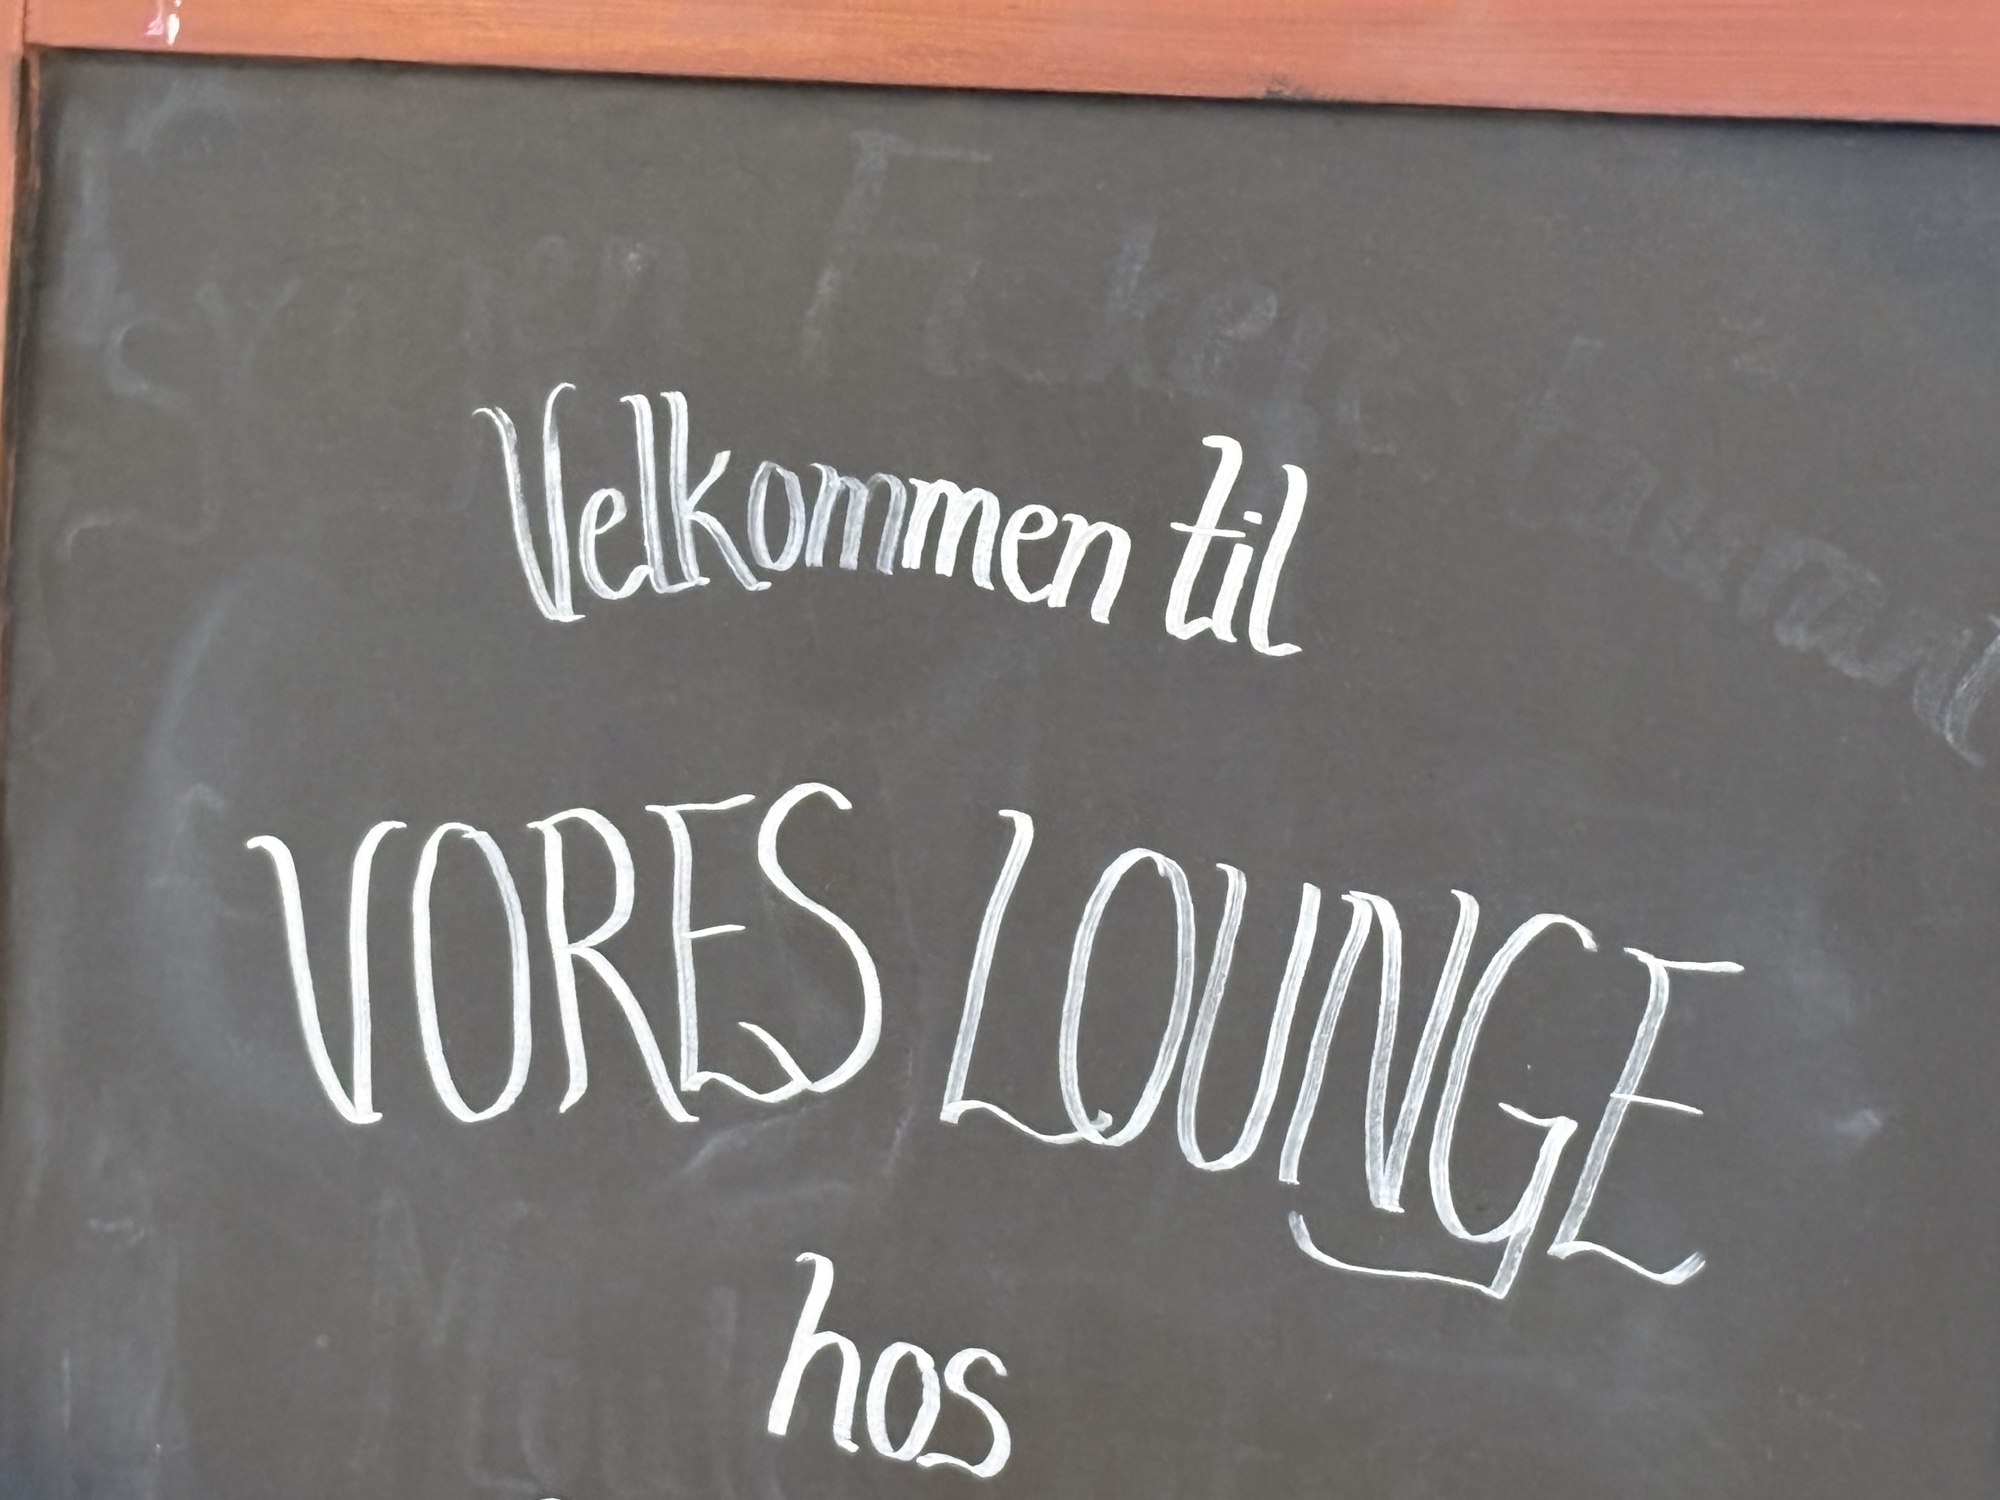 Velkommen til
VORES LOUNGE
hos